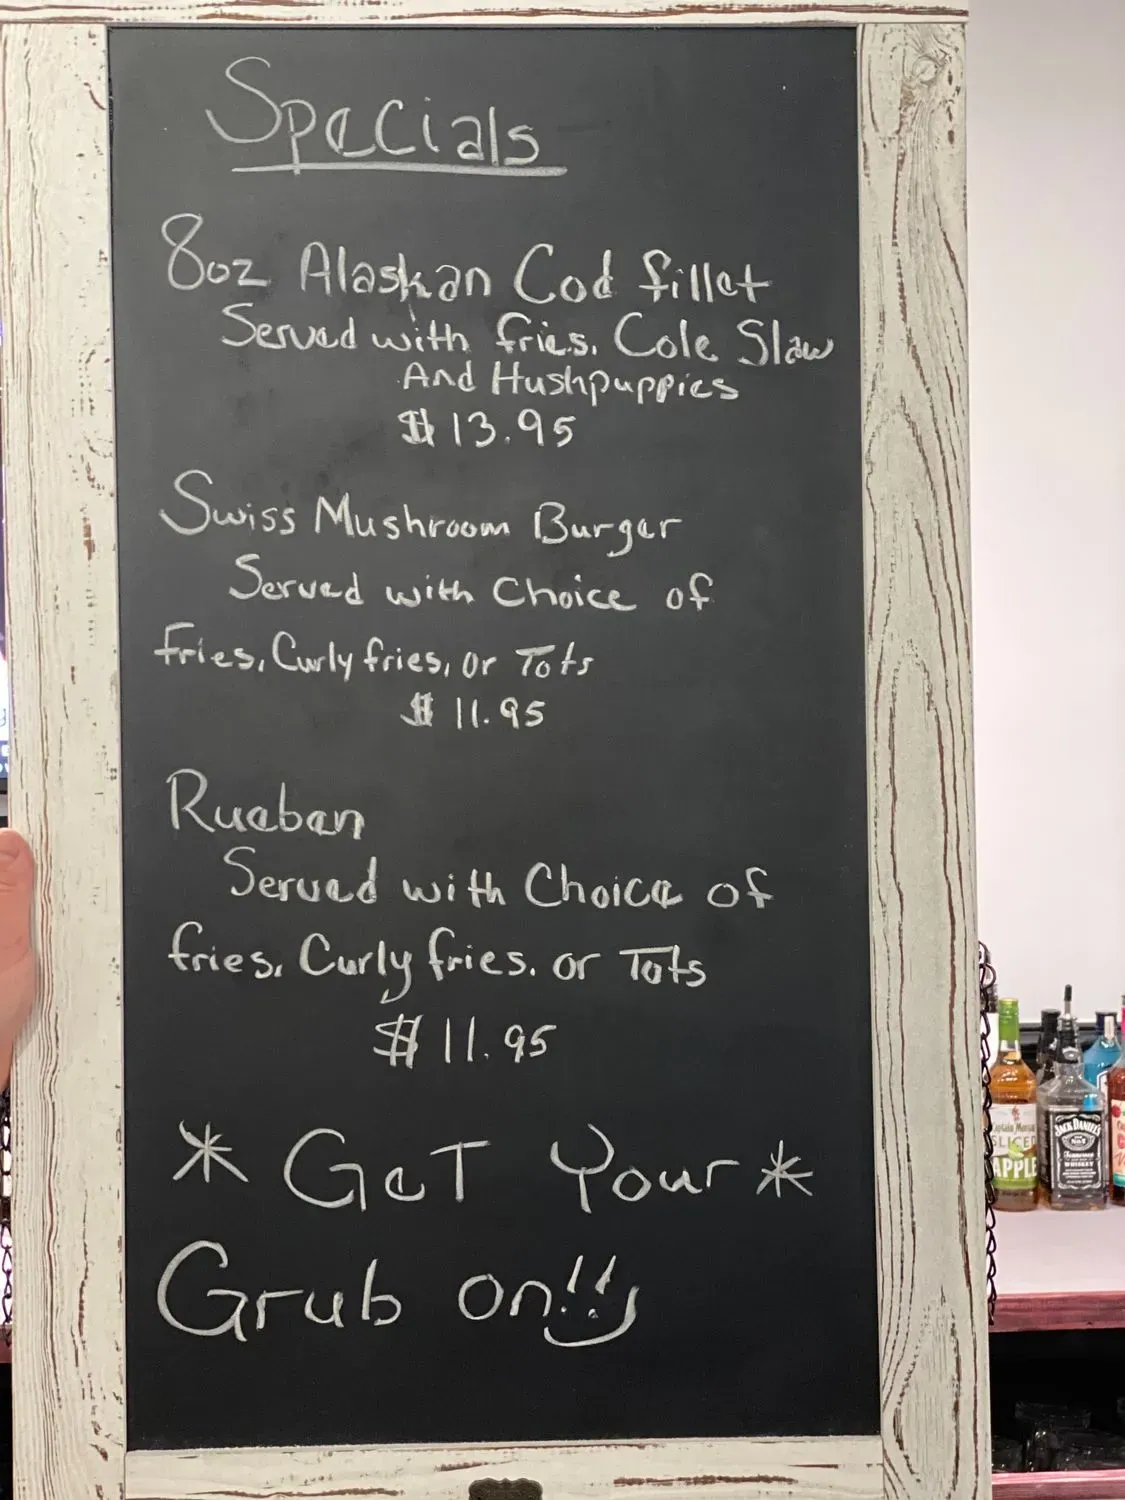 Specials
8oz Alaskan Cod fillet
Served with fries, Cole Slaw
And Hushpuppies
$13.95
Swiss Mushroom Burger
Served with Choice of
Fries, Curly fries, or Tots
$11.95
Rueben
Served with Choice of
fries, Curly fries, or Tots
$11.95
* Get Your *
Grub on!!
Captain Morgan
SLICED
APPLE
JACK DANIEL'S
Tennessee
WHISKEY